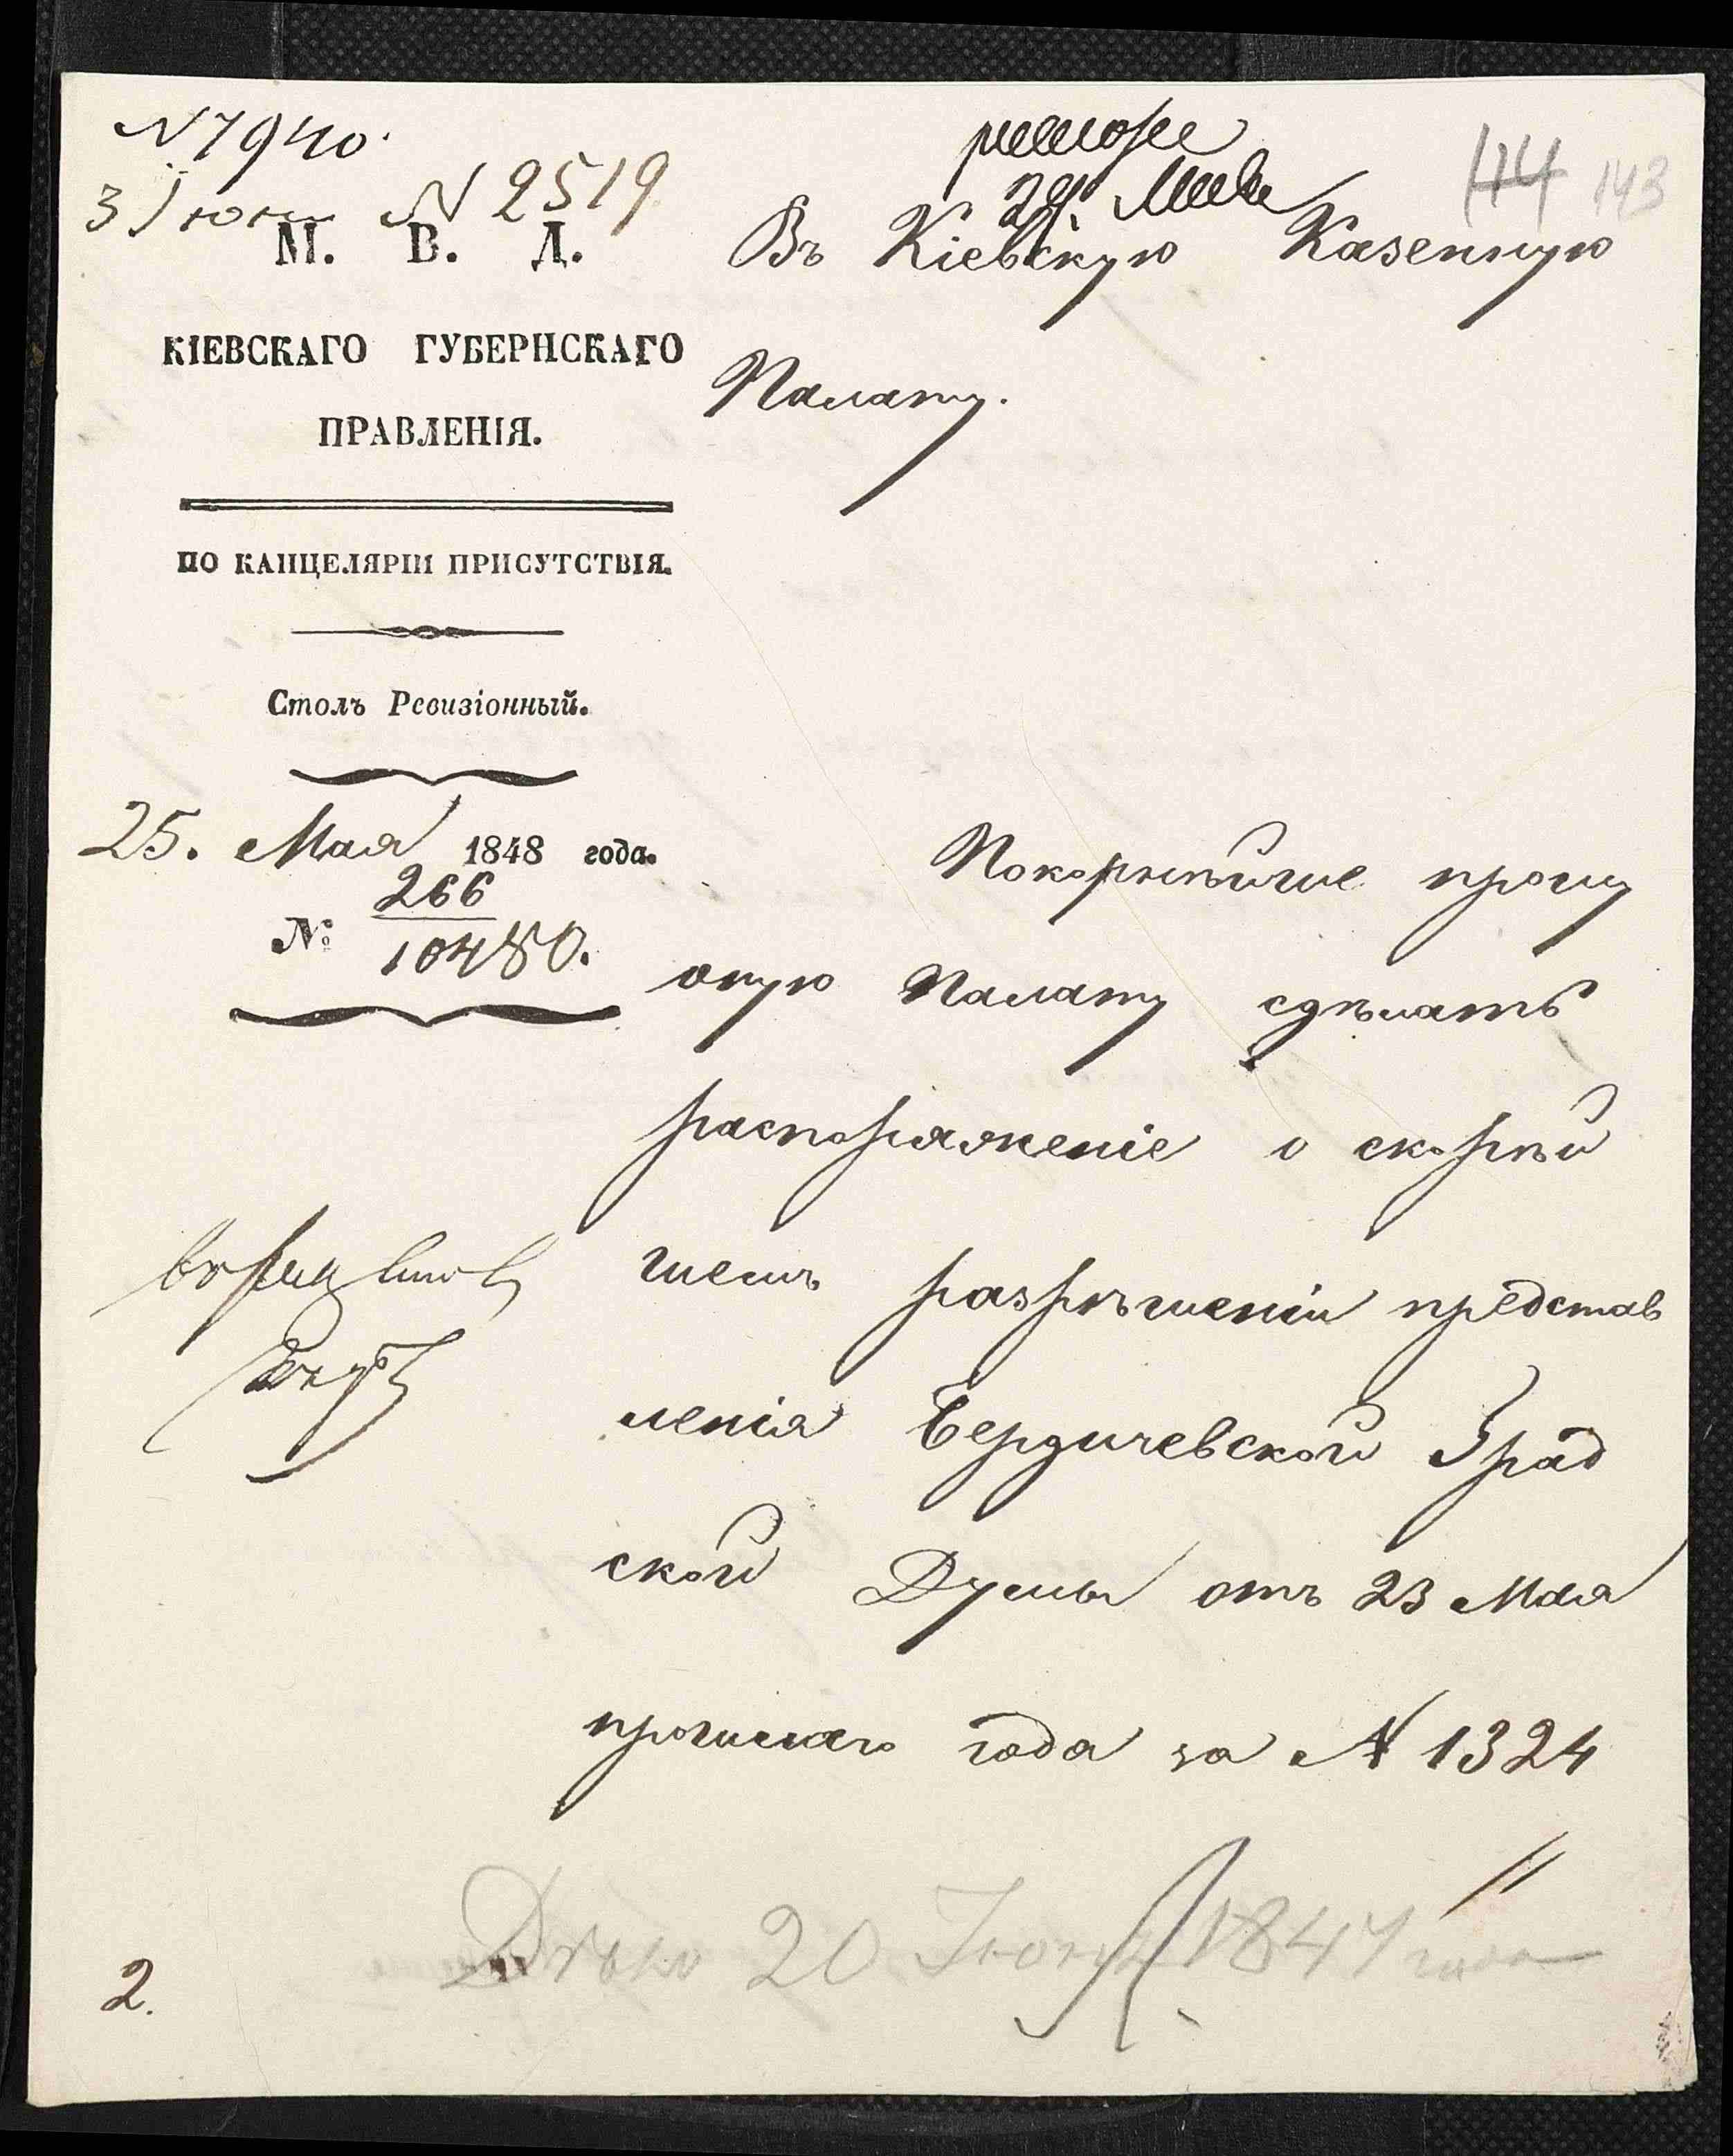 N 7940.
3 Іюня N 2519
144 143
М. В. Д.
КІЕВСКАГО ГУБЕРНСКАГО
ПРАВЛЕНІЯ.
ПО КАНЦЕЛЯРІИ ПРИСУТСТВІЯ.
Столъ Ревизіонный.
25. Мая 1848 года.
№ 266
10480.
29 Мая
Въ Кіевскую Казенную
Палату.
Покорнѣйше прошу
оную Палату сдѣлать
распоряженіе о скорѣй
шемъ разрѣшеніи представ
ленія Бердичевской Град
ской Думы отъ 23 Мая
прошлаго года за N 1324
Дѣло 20 Іюня 1847 года
2.